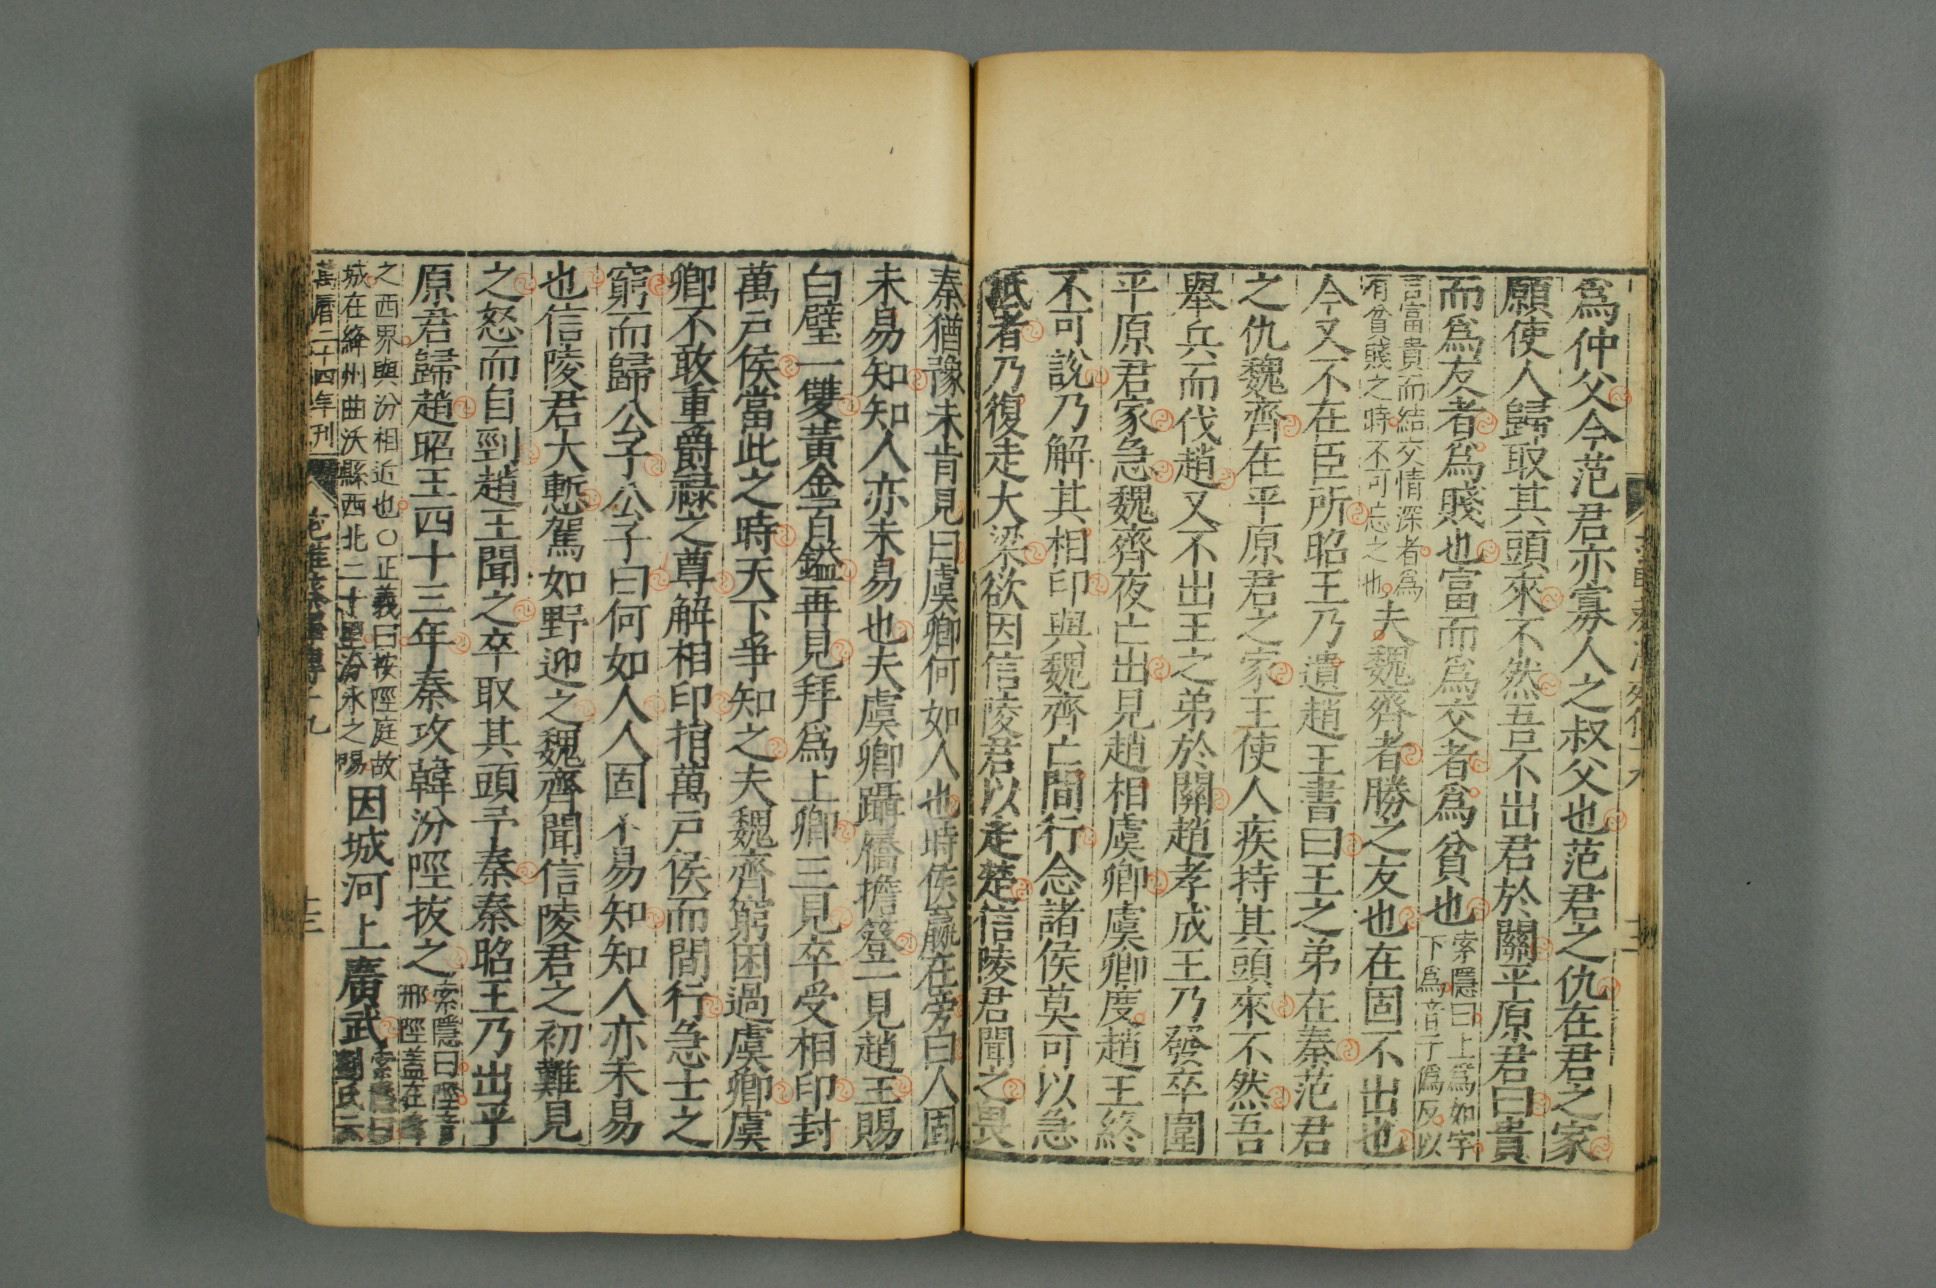 爲仲父今范君亦寡人之叔父也范君之仇在君之家
願使人歸取其頭來不然吾不出君於關平原君曰貴
而爲友者爲賤也富而爲交者爲貧也索隱曰上爲如字下爲音于僞反以
言富貴而結交情深者爲有貧賤之時不可忘之也夫魏齊者勝之友也在固不出也
今又不在臣所昭王乃遺趙王書曰王之弟在秦范君
之仇魏齊在平原君之家王使人疾持其頭來不然吾
舉兵而伐趙又不出王之弟於關趙孝成王乃發卒圍
平原君家急魏齊夜亡出見趙相虞卿虞卿度趙王終
不可說乃解其相印與魏齊亡間行念諸侯莫可以急
抵者乃復走大梁欲因信陵君以走楚信陵君聞之畏
秦猶豫未肯見曰虞卿何如人也時侯嬴在旁曰人固
未易知知人亦未易也夫虞卿躡屩擔簦一見趙王賜
白璧一雙黃金百鎰再見拜爲上卿三見卒受相印封
萬戶侯當此之時天下爭知之夫魏齊窮困過虞卿虞
卿不敢重爵祿之尊解相印捐萬戶侯而間行急士之
窮而歸公子公子曰何如人人固不易知知人亦未易
也信陵君大慙駕如野迎之魏齊聞信陵君之初難見
之怒而自剄趙王聞之卒取其頭予秦秦昭王乃出平
原君歸趙昭王四十三年秦攻韓汾陘拔之索隱曰陘音邢陘蓋在韓
之西界與汾相近也○正義曰按陘庭故城在絳州曲沃縣西北二十里汾水之陽因城河上廣武索隱曰劉氏云
萬曆二十四年刊 范雎蔡澤傳十九 十三